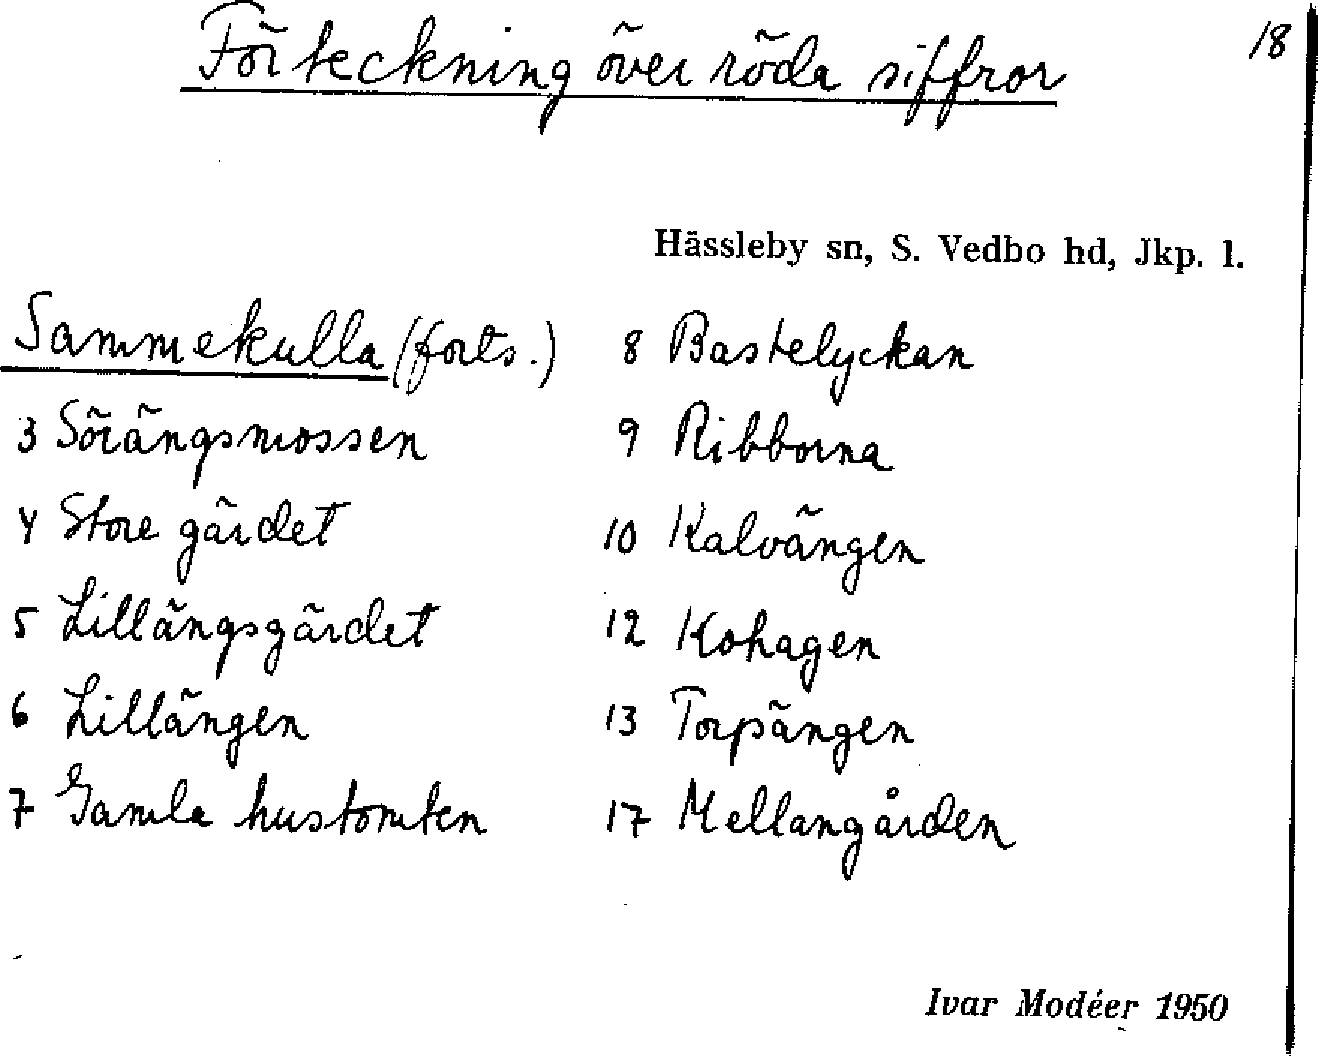 Förteckning över röda siffror
18
Hässleby sn, S. Vedbo hd, Jkp. l.
Sammekulla (forts.)
3 Sörängsmossen
4 Store gärdet
5 Lillängsgärdet
6 Lillängen
7 Gamla hustomten
8 Bastelyckan
9 Ribborna
10 Kalvängen
12 Kohagen
13 Torpängen
17 Mellangården
Ivar Modéer 1950